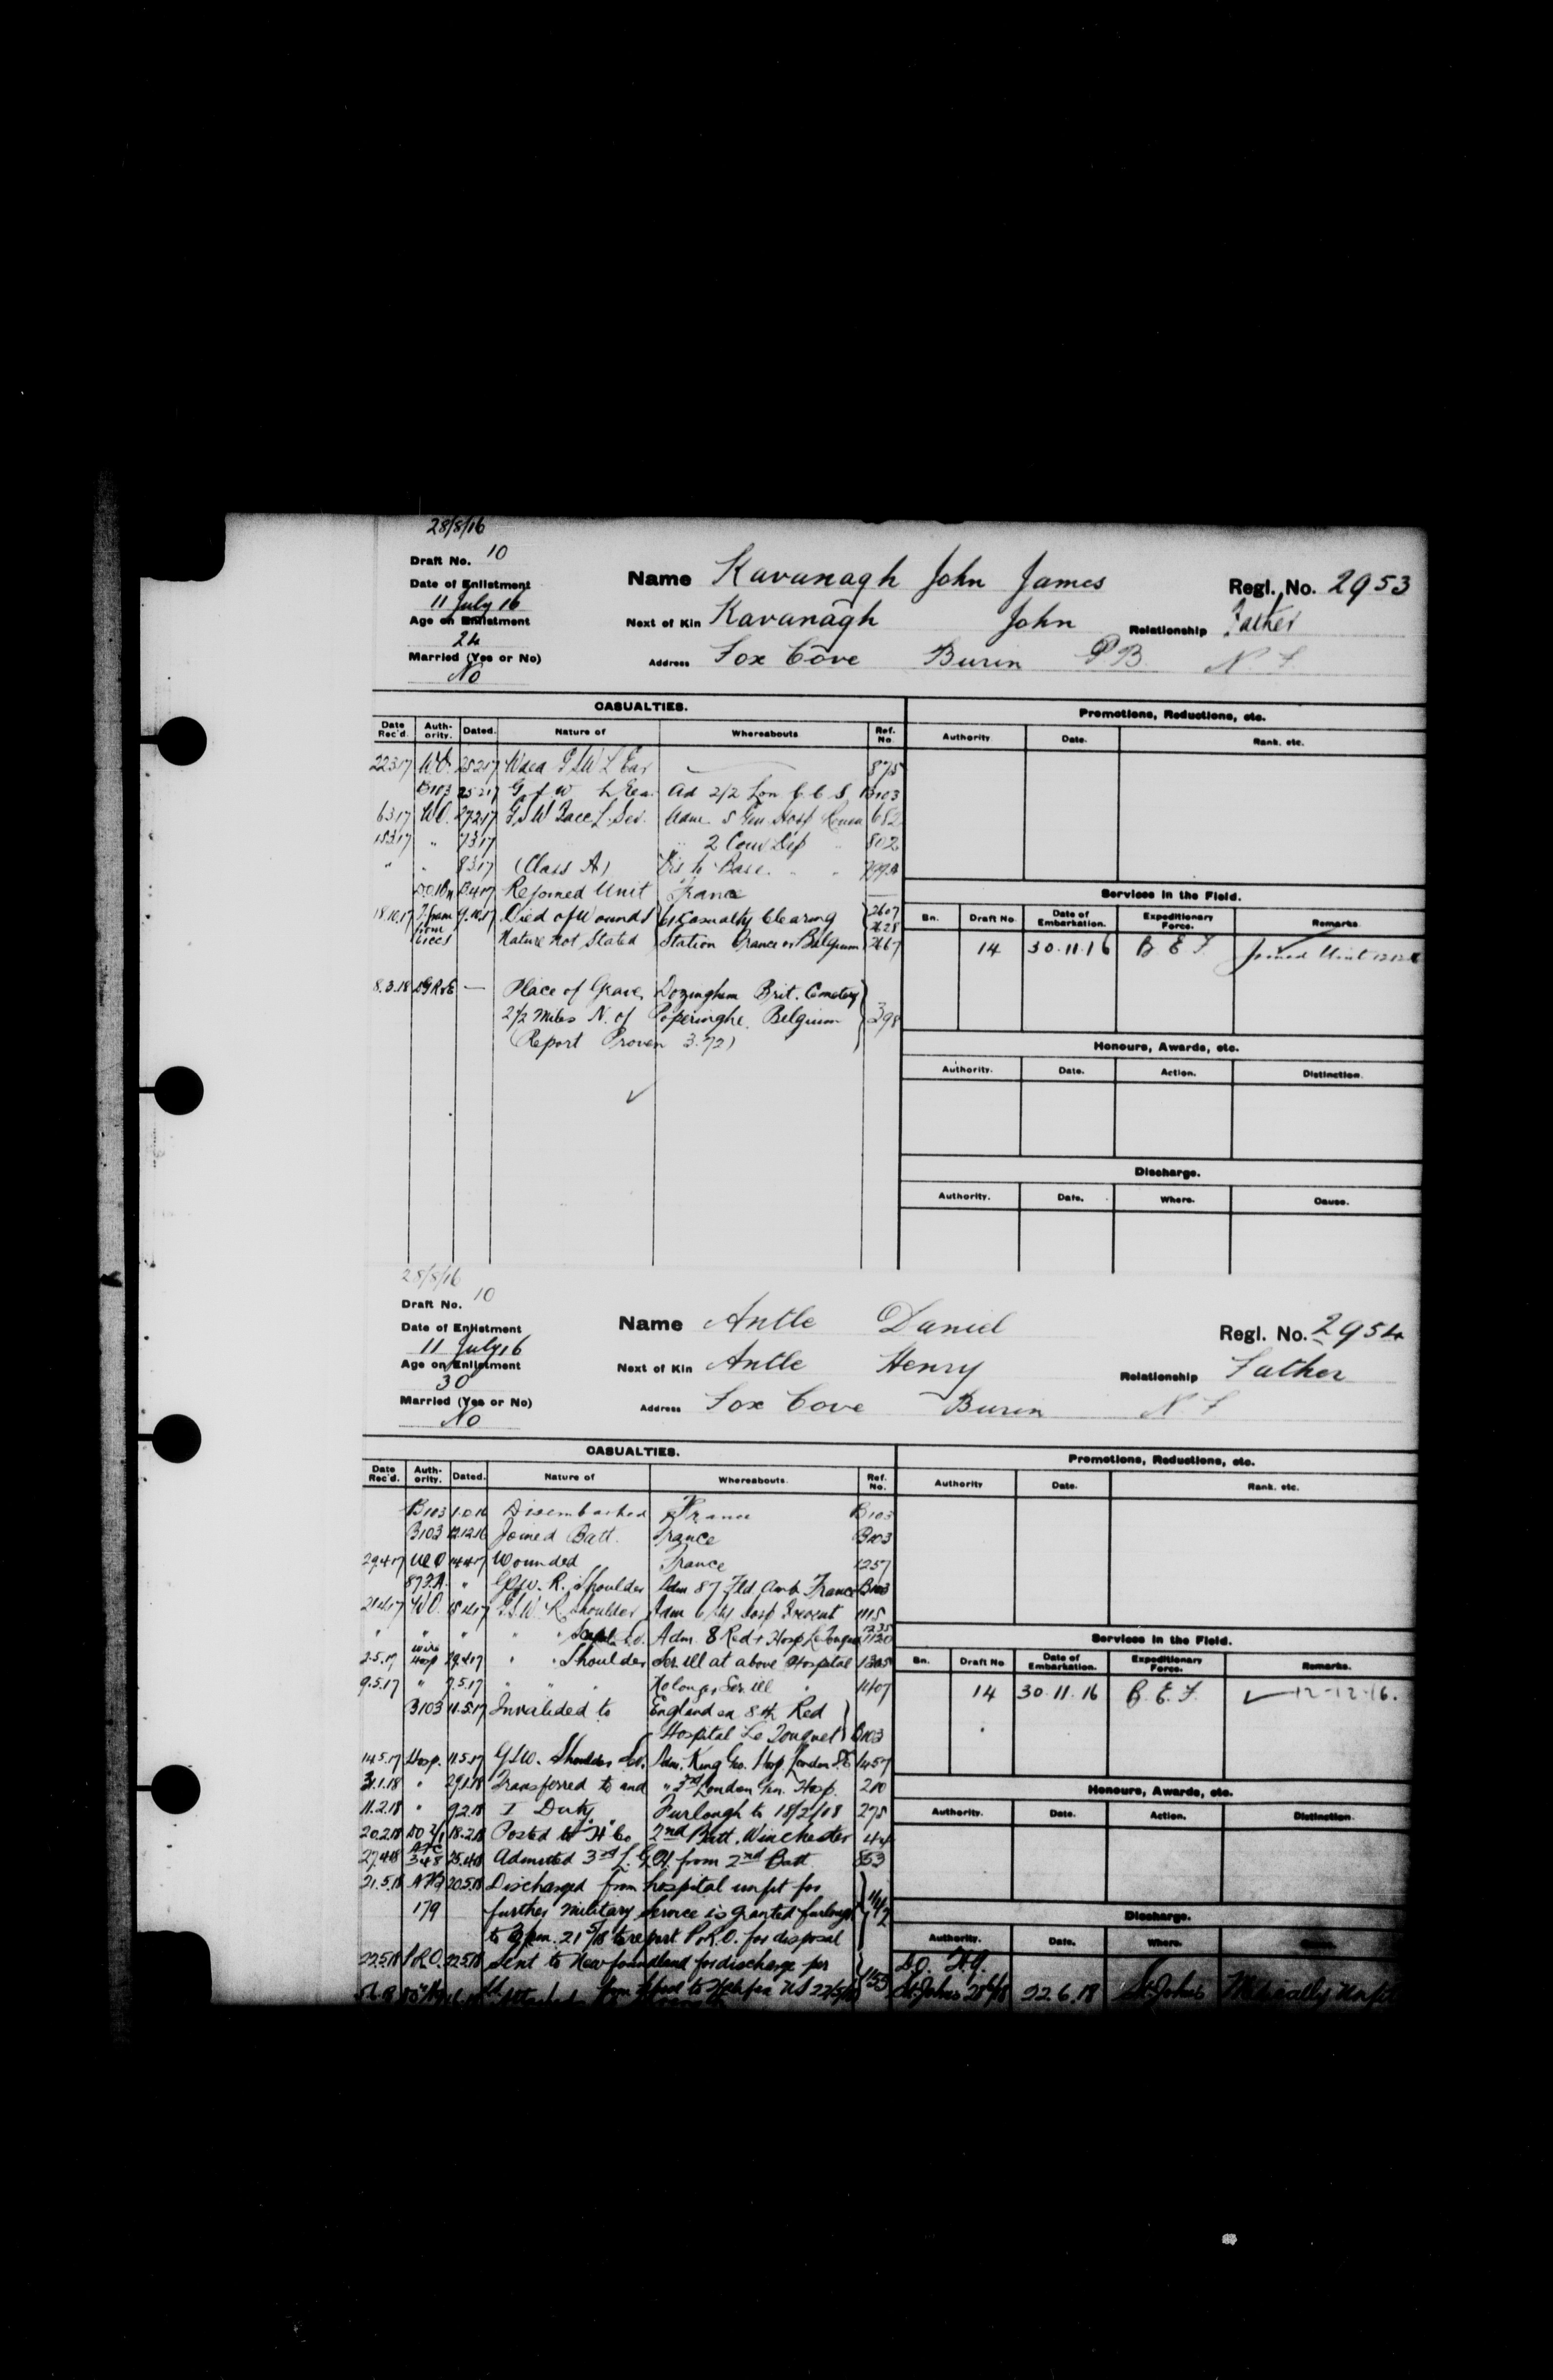 28/8/16
Draft No. 10
Date of Enlistment
11 July 16
Age on Enlistment
24
Married (Yes or No)
No
Name Kavanagh John James Regl. No. 2953
Next of Kin Kavanagh John Relationship Father
Address Fox Cove Burin P B N. F.
CASUALTIES.
Date Rec'd. Authority. Dated. Nature of Whereabouts Ref. No.
22317 W.O. 25217 Wded G.S.W L Ear 875
B103 25217 G.S.W L Ear Ad 2/2 Lon C.C.S. B103
6317 W.O. 27217 G.S.W Face L. Sev. Adm. 5 Gen Hosp Rouen 682
15317 " 7317 " 2 Con Dep " 802
" " 8317 (Class A) Dis to Base. " "
Rejoined Unit France
18.10.17 9.10.17 Died of Wounds 61 Casualty Clearing 2607
Nature not Stated Station France or Belgium 2628
2667
8.3.18 DGR&E — Place of Grave, Dozinghem Brit. Cemetery
2½ Miles N. of Poperinghe, Belgium 398
(Report Proven 3.72)
Promotions, Reductions, etc.
Authority Date. Rank. etc.
Services in the Field.
Bn. Draft No. Date of Embarkation. Expeditionary Force. Remarks.
14 30.11.16 B E F. Joined Unit
Honours, Awards, etc.
Authority. Date. Action. Distinction.
Discharge.
Authority. Date. Where. Cause.
28/8/16
Draft No. 10
Date of Enlistment
11 July 16
Age on Enlistment
30
Married (Yes or No)
No
Name Antle Daniel Regl. No. 2954
Next of Kin Antle Henry Relationship Father
Address Fox Cove Burin N F
CASUALTIES.
Date Rec'd. Authority. Dated. Nature of Whereabouts. Ref. No.
B103 Disembarked France B103
B103 12.12.16 Joined Batt. France B103
29417 W.O 14417 Wounded France 1257
87 F.A. " G.S.W. R. Shoulder Adm 87 Fld Amb France B103
21417 W.O. 15417 G.S.W. R Shoulder Adm 6 Hosp 1115
" " " " Adm. 8 Red + Hosp Le Touquet 1120
2.5.17 Wire Hosp 29417 " " Shoulder Ser. ill at above Hospital 1305
9.5.17 " 7.5.17 " " " No longer Ser. ill " 1407
B103 11.5.17 Invalided to England ex 8th Red
Hospital Le Touquet B103
14.5.17 Hosp. 11.5.17 G.S.W. Shoulder Sev. Adm. King Geo. Hosp London S.E 1457
31.1.18 " 29.1.18 Transferred to and " 3rd London Gen. Hosp. 210
11.2.18 " 9.2.18 I Duty Furlough to 18/2/18 275
20.2.18 18.2.18 Posted to "H" Co 2nd Batt. Winchester 44
27.4.18 25.4.18 Admitted 3rd L. G. H. from 2nd Batt.
21.5.18 20.5.18 Discharged from hospital unfit for
179 further military service is granted furlough
to report P.&R.O. for disposal
22.5.18 P.&R.O. 22.5.18 Sent to Newfoundland for discharge per
to Halifax NS 22/5/18
Promotions, Reductions, etc.
Authority Date. Rank. etc.
Services in the Field.
Bn. Draft No Date of Embarkation. Expeditionary Force. Remarks.
14 30.11.16 B. E. F. 12-12-16.
Honours, Awards, etc.
Authority. Date. Action. Distinction.
Discharge.
Authority. Date. Where.
St. Johns 22.6.18 St. Johns Medically Unfit